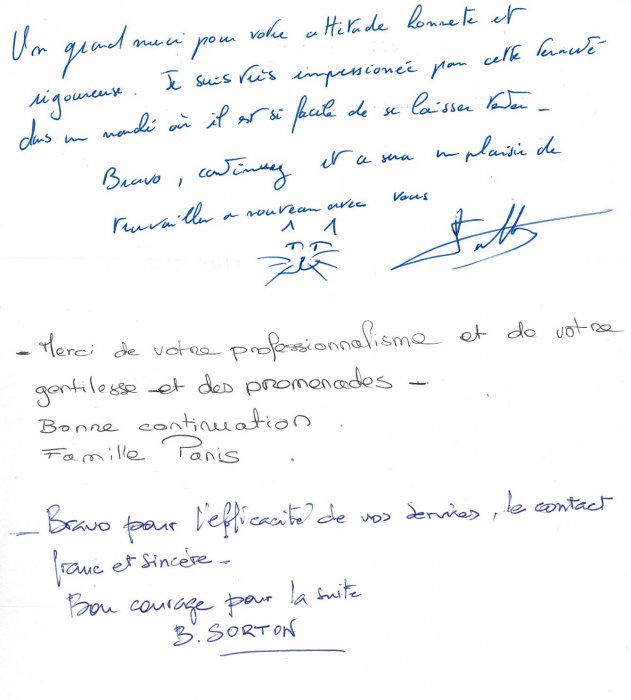 Un grand merci pour votre attitude honnete et
rigoureuse. Je suis très impressionée par cette
dans un monde où il est si facile de se laisser tenter -
Bravo, continuez et ce sera un plaisir de
retravailler a nouveau avec vous
- Merci de votre professionnalisme et de votre
gentilesse et des promenades -
Bonne continuation.
Famille Panis.
- Bravo pour l'efficacité de vos services, le contact
franc et sincère -
Bon courage pour la suite
B. SORTON